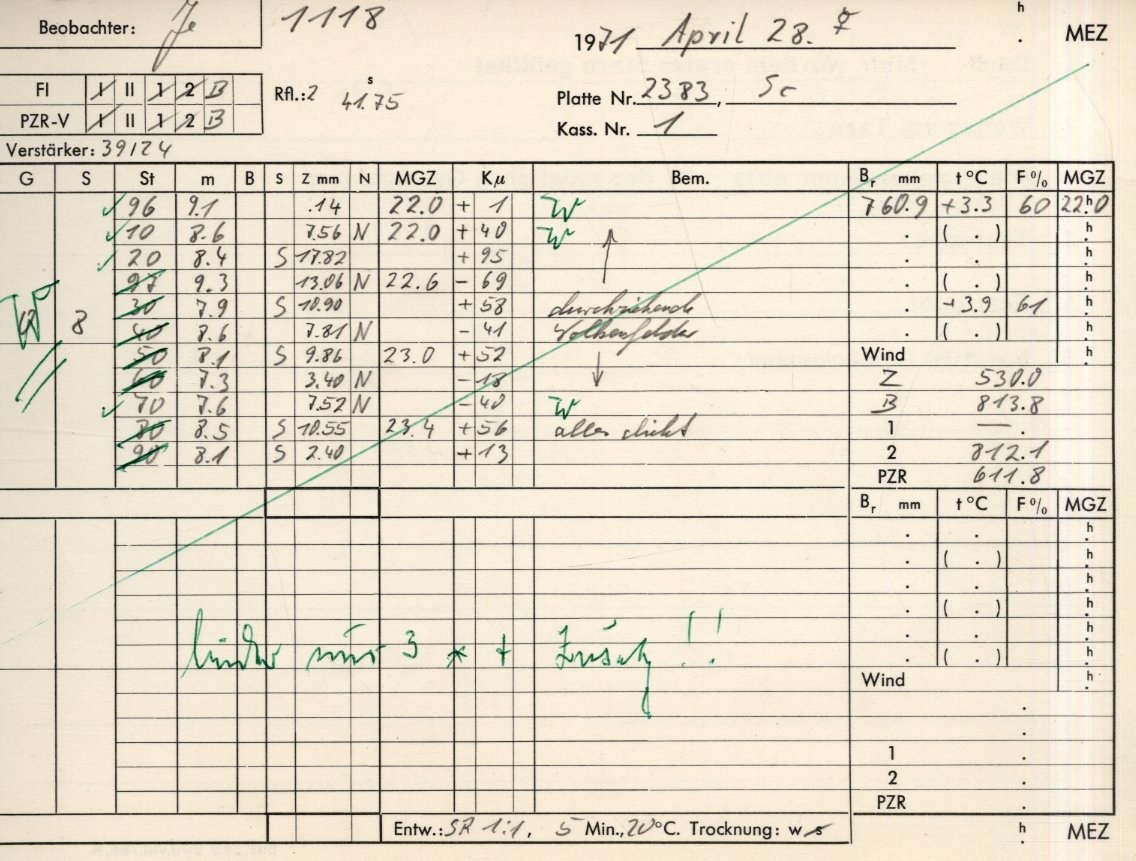 Beobachter: Je 1118
h
1971 April 28. ☿ . MEZ
FI I II 1 2 B
PZR-V I II 1 2 B
Rfl.: 2 41.75 s
Platte Nr. 2383, Sc
Kass. Nr. 1
Verstärker: 39/24
G S St m B S Z mm N MGZ Kμ Bem. Br mm t °C F % MGZ
96 9.1 .14 22.0 + 1 W 760.9 +3.3 60 22.0 h
10 8.6 7.56 N 22.0 + 40 W . ( . ) h
20 8.4 S 17.82 + 95 . . h
97 9.3 13.06 N 22.6 - 69 . ( . ) h
W 8 30 7.9 S 10.90 + 58 durchziehende . +3.9 61 h
40 8.6 7.81 N - 41 Wolkenfelder . ( . ) h
50 8.1 S 9.86 23.0 + 52 Wind h
60 7.3 3.40 N - 18 Z 530.0
70 7.6 7.52 N - 40 W B 813.8
80 8.5 S 10.55 23.4 + 56 alles dicht 1 — .
90 8.1 S 2.40 + 13 2 812.1
PZR 611.8
Br mm t °C F % MGZ
. . h
. ( . ) h
. . h
. ( . ) h
. . h
leider nur 3 * + Zusatz !! . ( . ) h
Wind h
.
.
1 .
2 .
PZR .
Entw.: SR 1:1, 5 Min., 20 °C. Trocknung: w s h . MEZ